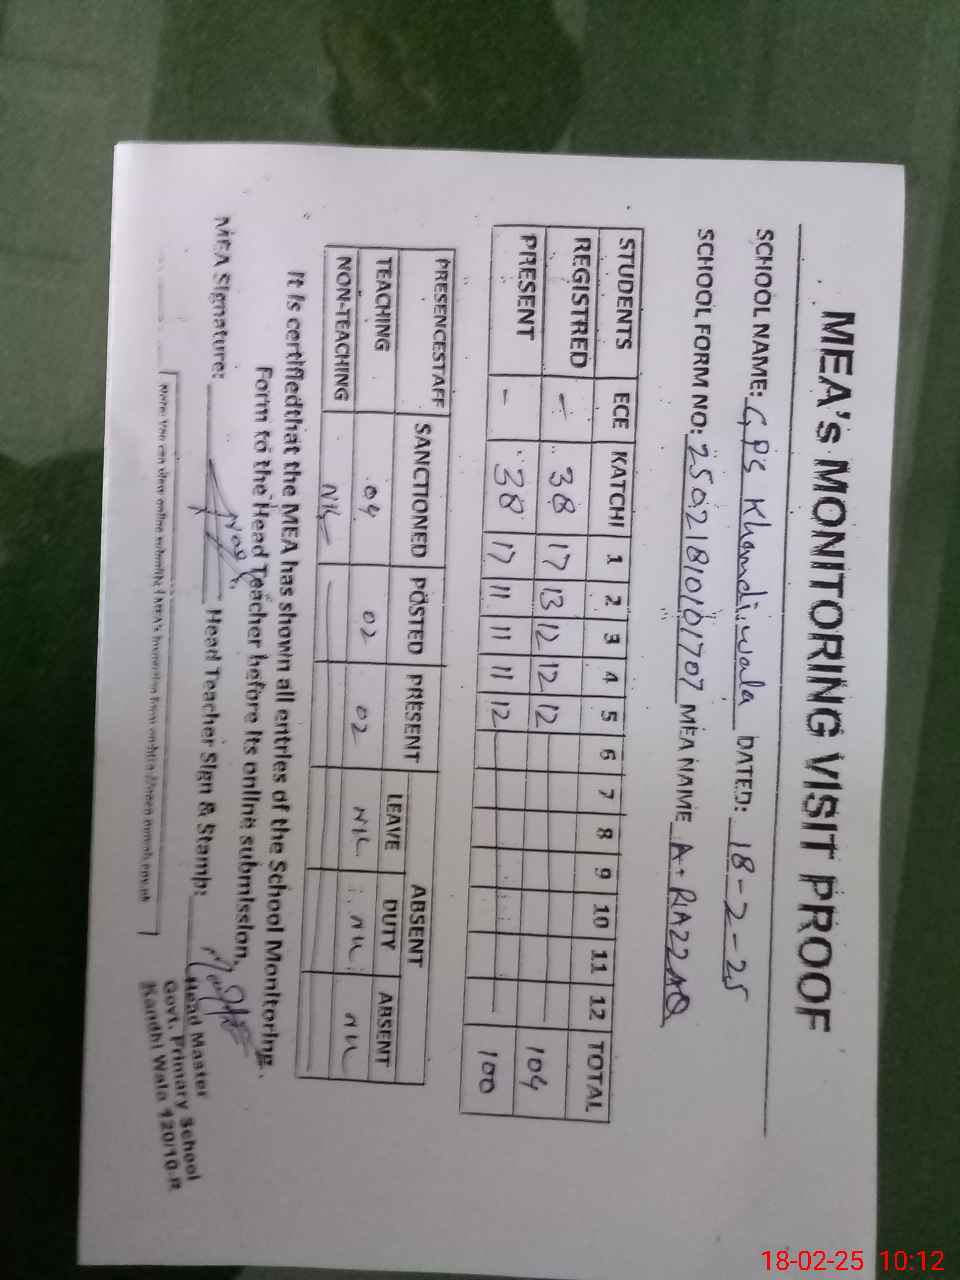 MEA's MONITORING VISIT PROOF
SCHOOL NAME: GPS Khandiwala DATED: 18-2-25
SCHOOL FORM NO: 25021810101707 MEA NAME A. RAZZAQ
STUDENTS ECE KATCHI 1 2 3 4 5 6 7 8 9 10 11 12 TOTAL
REGISTRED - 38 17 13 12 12 12 104
PRESENT - 38 17 11 11 11 12 100
PRESENCESTAFF SANCTIONED POSTED PRESENT ABSENT
LEAVE DUTY ABSENT
TEACHING 04 02 02 NIL NIL NIL
NON-TEACHING NIL
It is certifiedthat the MEA has shown all entries of the School Monitoring
Form to the Head Teacher before its online submission.
MEA Signature: Head Teacher Sign & Stamp:
Head Master
Govt. Primary School
Kandhi Wala 120/10-R
Note: You can view online submitted MEA's
18-02-25 10:12